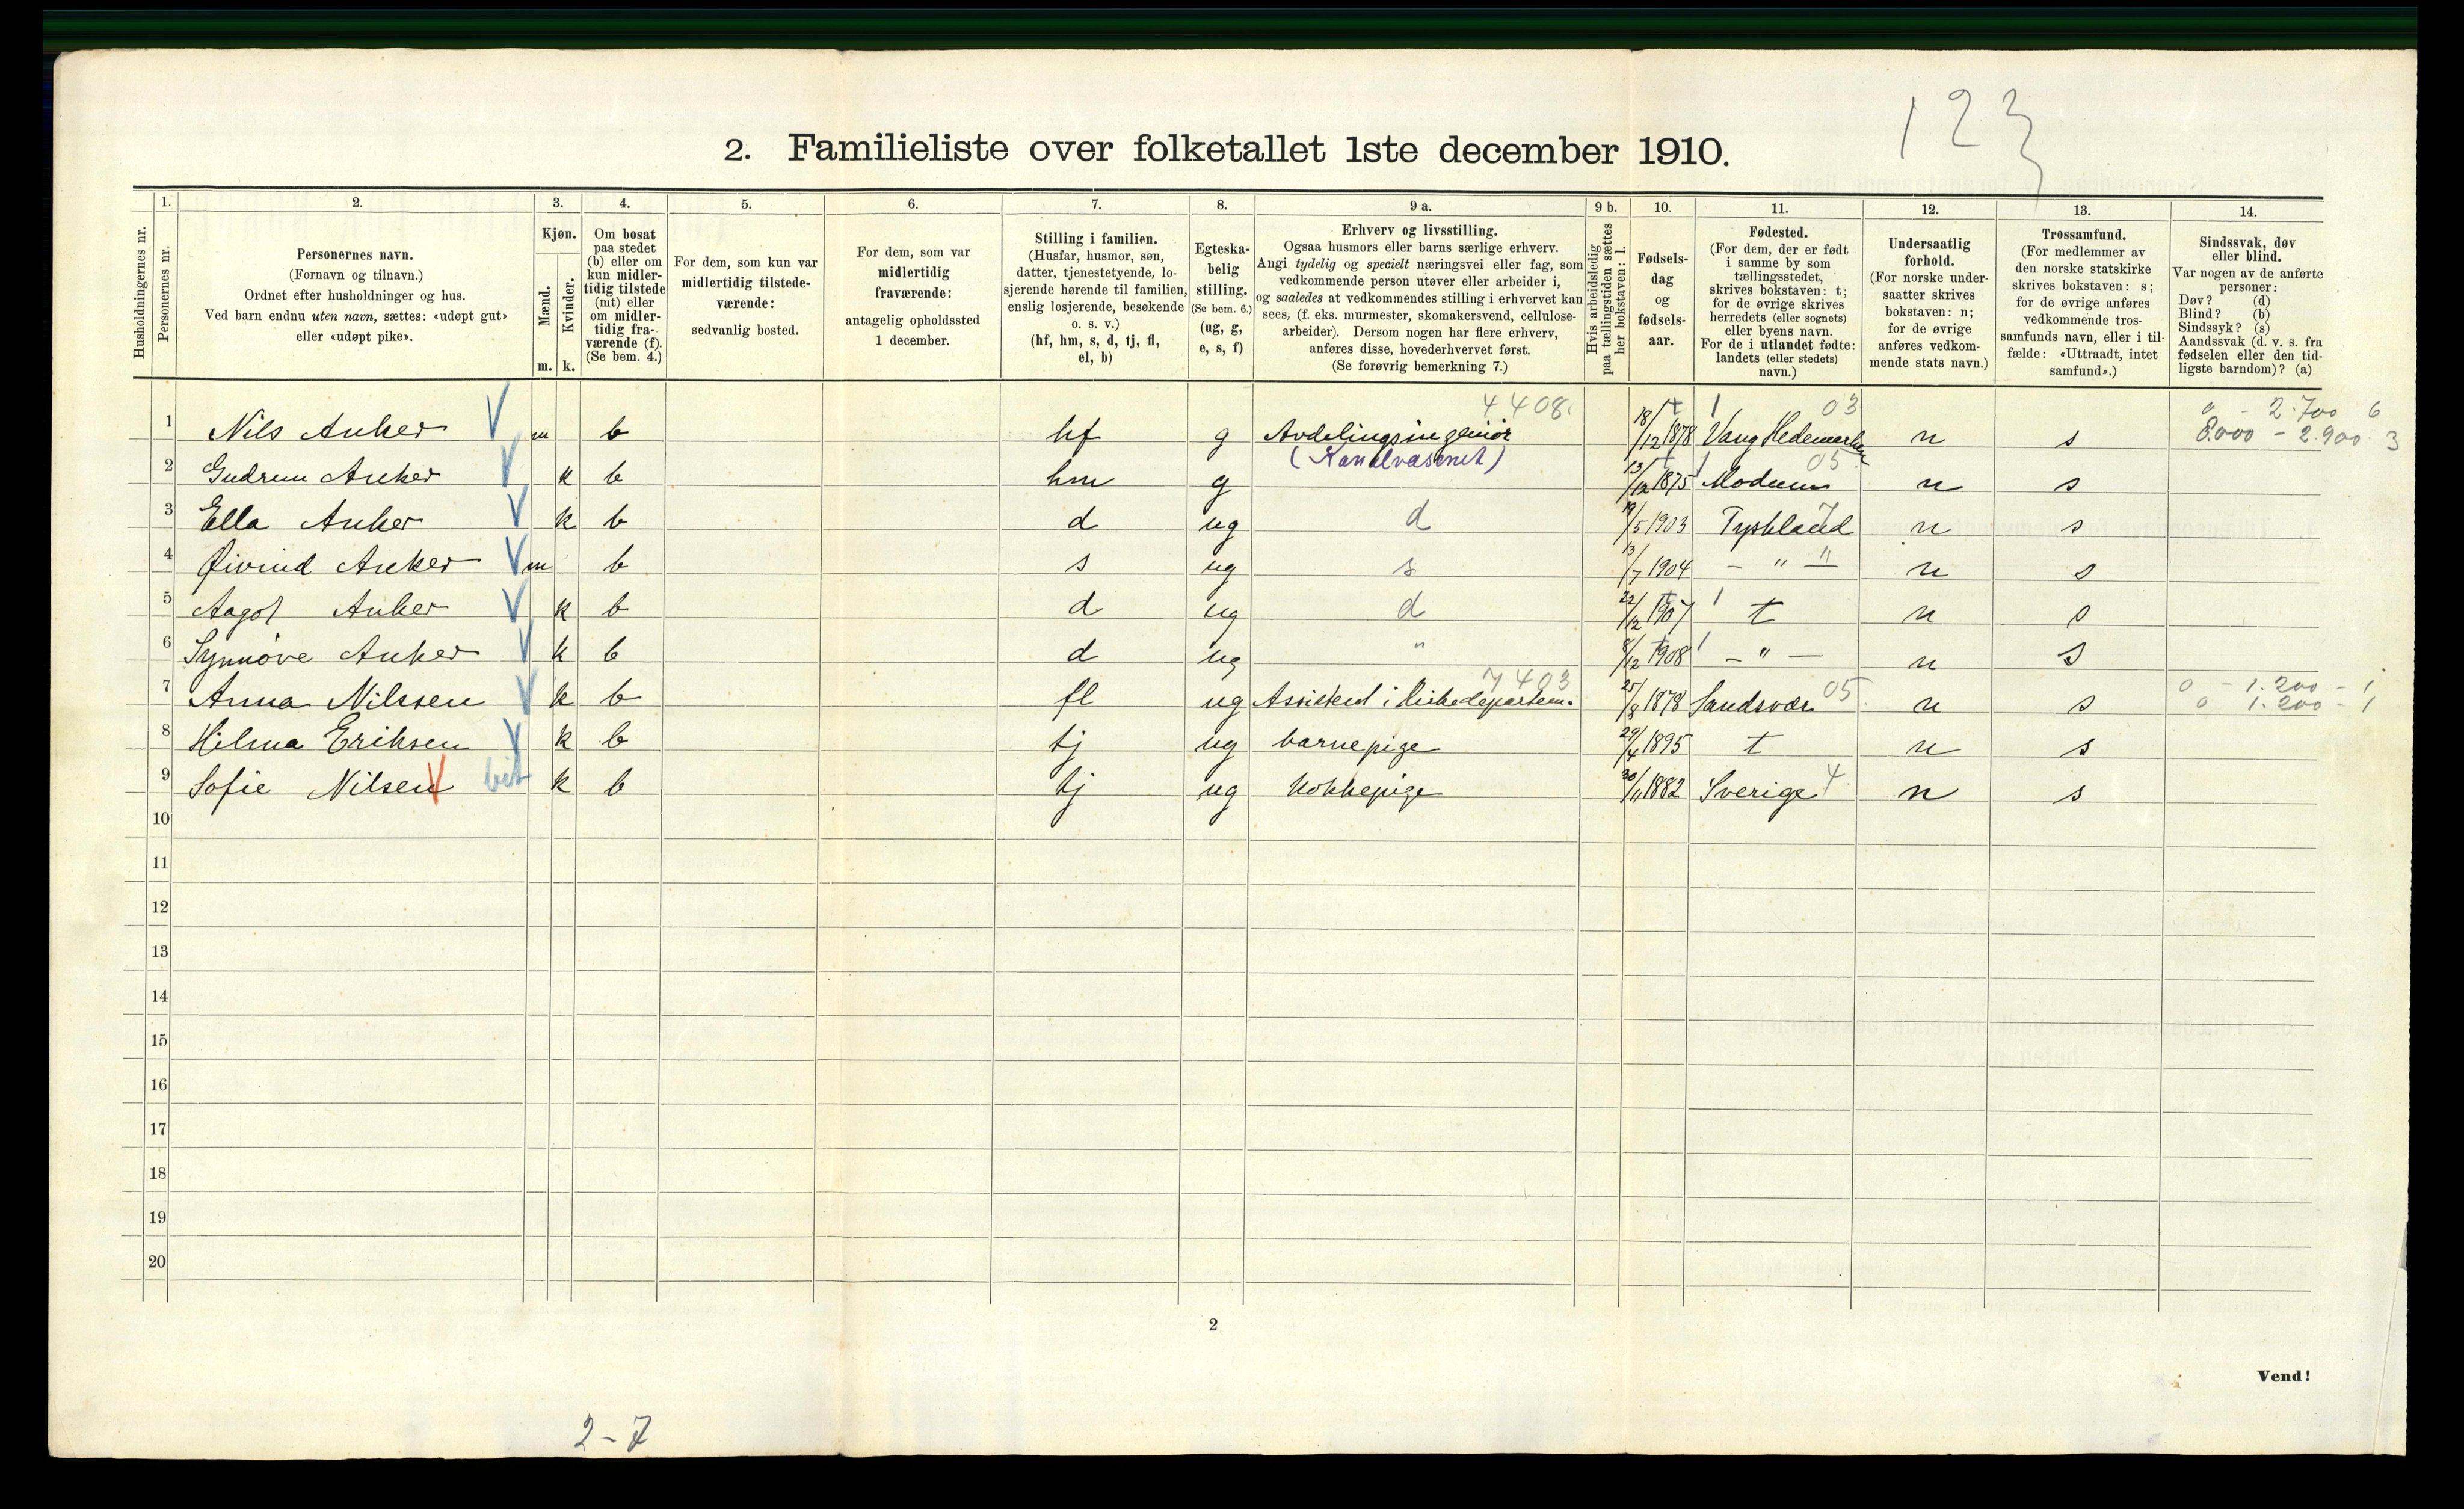 123
2. Familieliste over folketallet 1ste december 1910.
Husholdningernes nr.
1. Personernes nr.
2. Personernes navn. (Fornavn og tilnavn.) Ordnet efter husholdninger og hus. Ved barn endnu uten navn, sættes: «udøpt gut» eller «udøpt pike».
3. Kjøn. Mænd. m. Kvinder. k.
4. Om bosat paa stedet (b) eller om kun midlertidig tilstede (mt) eller om midlertidig fraværende (f). (Se bem. 4.)
5. For dem, som kun var midlertidig tilstedeværende: sedvanlig bosted.
6. For dem, som var midlertidig fraværende: antagelig opholdssted 1 december.
7. Stilling i familien. (Husfar, husmor, søn, datter, tjenestetyende, losjerende hørende til familien, enslig losjerende, besøkende o. s. v.) (hf, hm, s, d, tj, fl, el, b)
8. Egteskabelig stilling. (Se bem. 6.) (ug, g, e, s, f)
9 a. Erhverv og livsstilling. Ogsaa husmors eller barns særlige erhverv. Angi tydelig og specielt næringsvei eller fag, som vedkommende person utøver eller arbeider i, og saaledes at vedkommendes stilling i erhvervet kan sees, (f. eks. murmester, skomakersvend, cellulosearbeider). Dersom nogen har flere erhverv, anføres disse, hovederhvervet først. (Se forøvrig bemerkning 7.)
9 b. Hvis arbeidsledig paa tællingstiden sættes her bokstaven: l.
10. Fødselsdag og fødselsaar.
11. Fødested. (For dem, der er født i samme by som tællingsstedet, skrives bokstaven: t; for de øvrige skrives herredets (eller sognets) eller byens navn. For de i utlandet fødte: landets (eller stedets) navn.)
12. Undersaatlig forhold. (For norske undersaatter skrives bokstaven: n; for de øvrige anføres vedkommende stats navn.)
13. Trossamfund. (For medlemmer av den norske statskirke skrives bokstaven: s; for de øvrige anføres vedkommende trossamfunds navn, eller i tilfælde: «Uttraadt, intet samfund».)
14. Sindssvak, døv eller blind. Var nogen av de anførte personer: Døv? (d) Blind? (b) Sindssyk? (s) Aandssvak (d. v. s. fra fødselen eller den tidligste barndom)? (a)
4408. 03 0 - 2.700 6
1 Nils Anker V m b hf g Avdelingsingeniør 18/12 1878 Vang Hedemarken n s 8.000 - 2.900 3
(Kanalvæsenet) 05
2 Gudrun Anker V k b hm g 13/12 1875 Modum n s
3 Ella Anker V k b d ug d 19/5 1903 Tyskland 7 n s
4 Øivind Anker V m b s ug s 13/7 1904 - " - n s
5 Aagot Anker V k b d ug d 22/12 1907 t n s
6 Synnøve Anker V k b d ug " 8/12 1908 - " - n s
7403 0 - 1.200 - 1
7 Anna Nilssen V k b fl ug Assistent i Kirkedepartem. 25/8 1878 Sandsvær 05 n s 0 1.200 - 1
8 Hilma Eriksen V k b tj ug barnepige 29/4 1895 t n s
9 Sofie Nilsen V k b tj ug Kokkepige 30/11 1882 Sverige 4 n s
10
11
12
13
14
15
16
17
18
19
20
2
Vend!
2-7